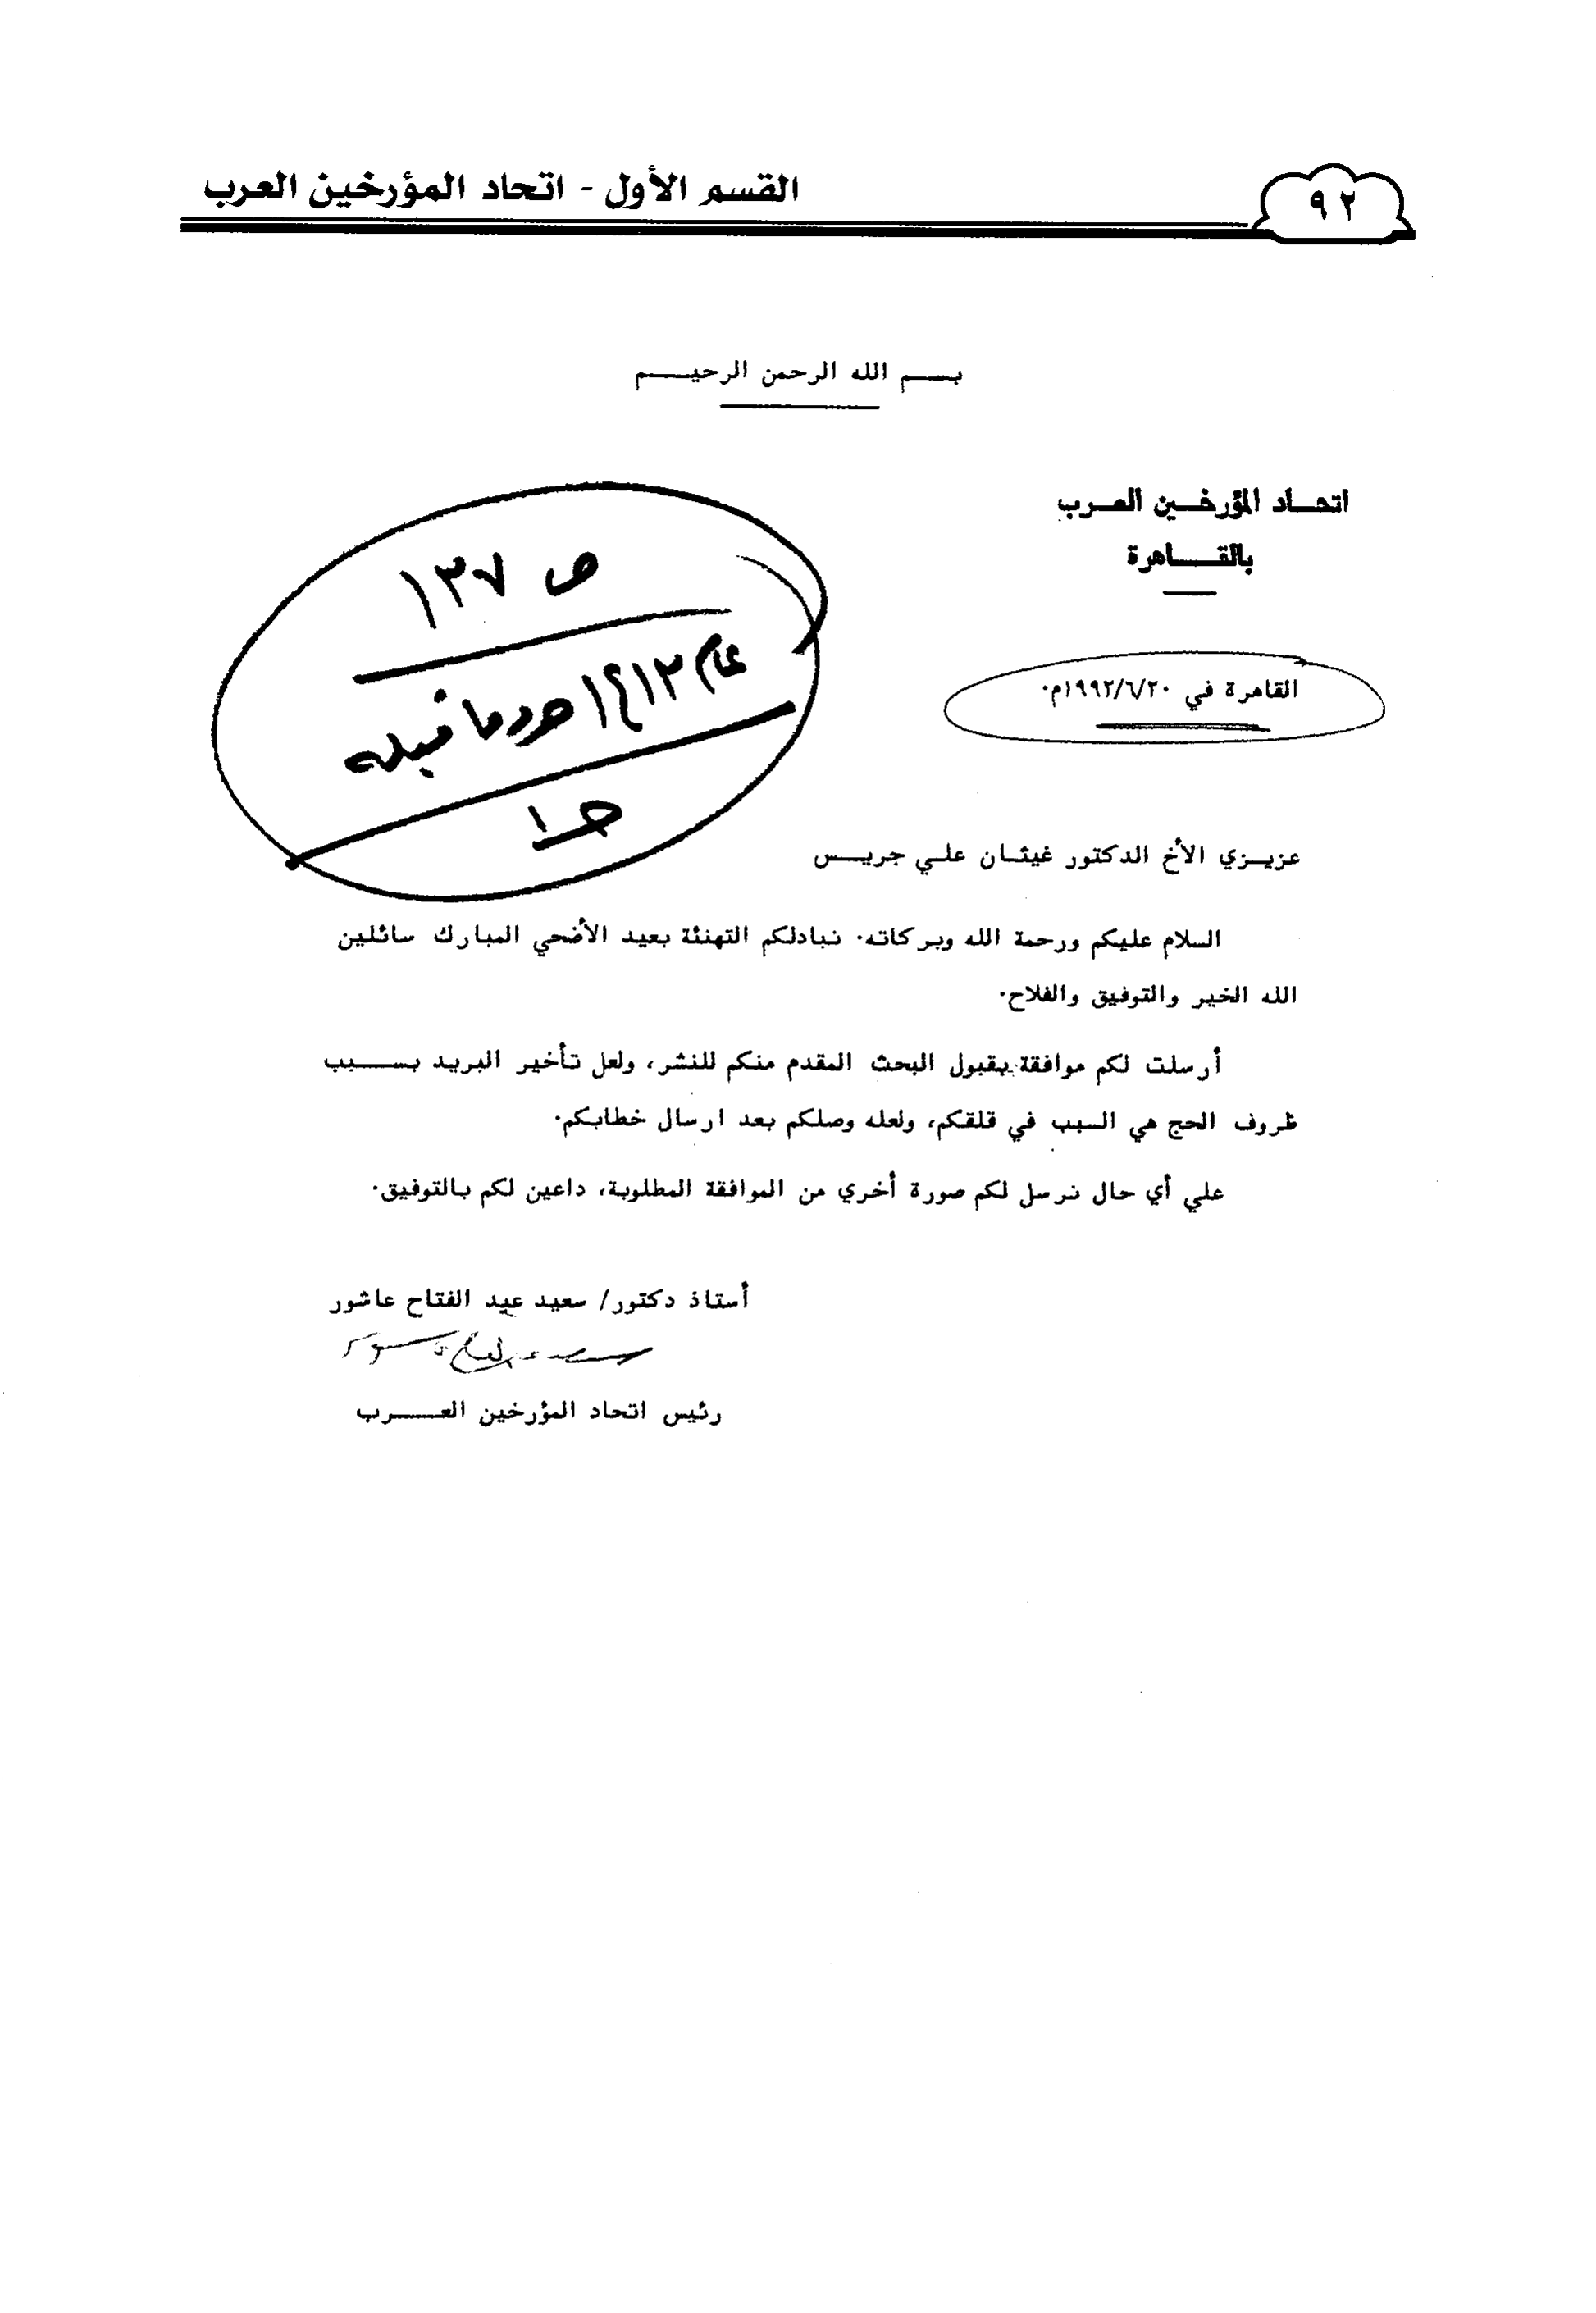 القسم الأول - اتحاد المؤرخين العرب
٩٢
بسم الله الرحمن الرحيم
اتحاد المؤرخين العرب
بالقاهرة
القاهرة في ١٩٩٢/٦/٢٠م.
ص ١٣٧
عام ١٤١٢هـ وما قبله
جـ ١
عزيزي الأخ الدكتور غيثان علي جريس
السلام عليكم ورحمة الله وبركاته. نبادلكم التهنئة بعيد الأضحي المبارك سائلين
الله الخير والتوفيق والفلاح.
أرسلت لكم موافقة بقبول البحث المقدم منكم للنشر، ولعل تأخير البريد بسبب
ظروف الحج هي السبب في قلقكم، ولعله وصلكم بعد ارسال خطابكم.
علي أي حال نرسل لكم صورة أخري من الموافقة المطلوبة، داعين لكم بالتوفيق.
أستاذ دكتور/ سعيد عبد الفتاح عاشور
سعيد عبد الفتاح عاشور
رئيس اتحاد المؤرخين العرب